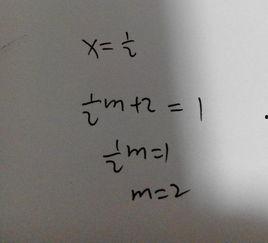 x=1/2
1/2m+2=1
1/2m=1
m=2